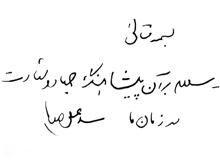 بسمه تعالی
سلام بر آن پیشاهنگ جهاد و شهادت
در زمان ما سید علی